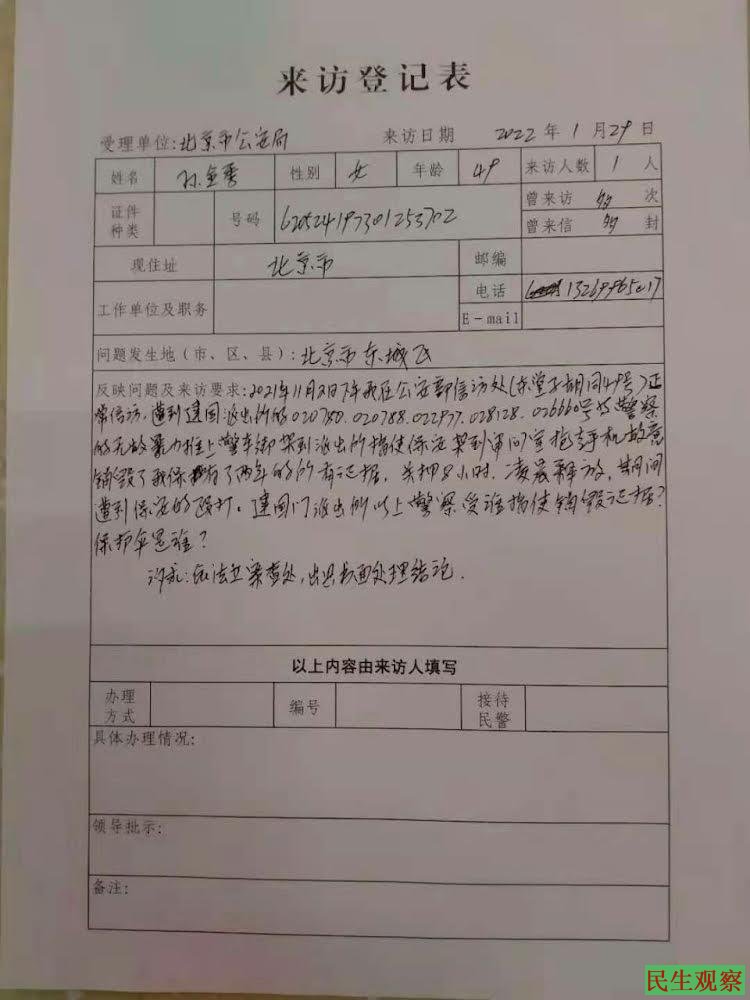 来访登记表
受理单位:北京市公安局 来访日期 2022年1月29日
姓名 孙金香 性别 女 年龄 49 来访人数 1 人
证件种类 号码 620524197301253702 曾来访 多 次
曾来信 多 封
现住址 北京市 邮编
工作单位及职务 电话
E-mail
问题发生地(市、区、县):北京市东城区
反映问题及来访要求:2021年11月2日下午我在公安部信访处(东堂子胡同49号)正
常信访,遭到建国派出所的020780.020788.022977.028128.026660号等警察
的无故暴力推上警车绑架到派出所指使保安架到审问室抢走手机故意
销毁了我保有了两年的所有证据,关押8小时.凌晨释放,期间
遭到保安的殴打。建国门派出所以上警察受谁指使销毁证据?
保护伞是谁?
诉求:依法立案查处,出具书面处理结论.
以上内容由来访人填写
办理方式 编号 接待民警
具体办理情况:
领导批示:
备注:
民生观察